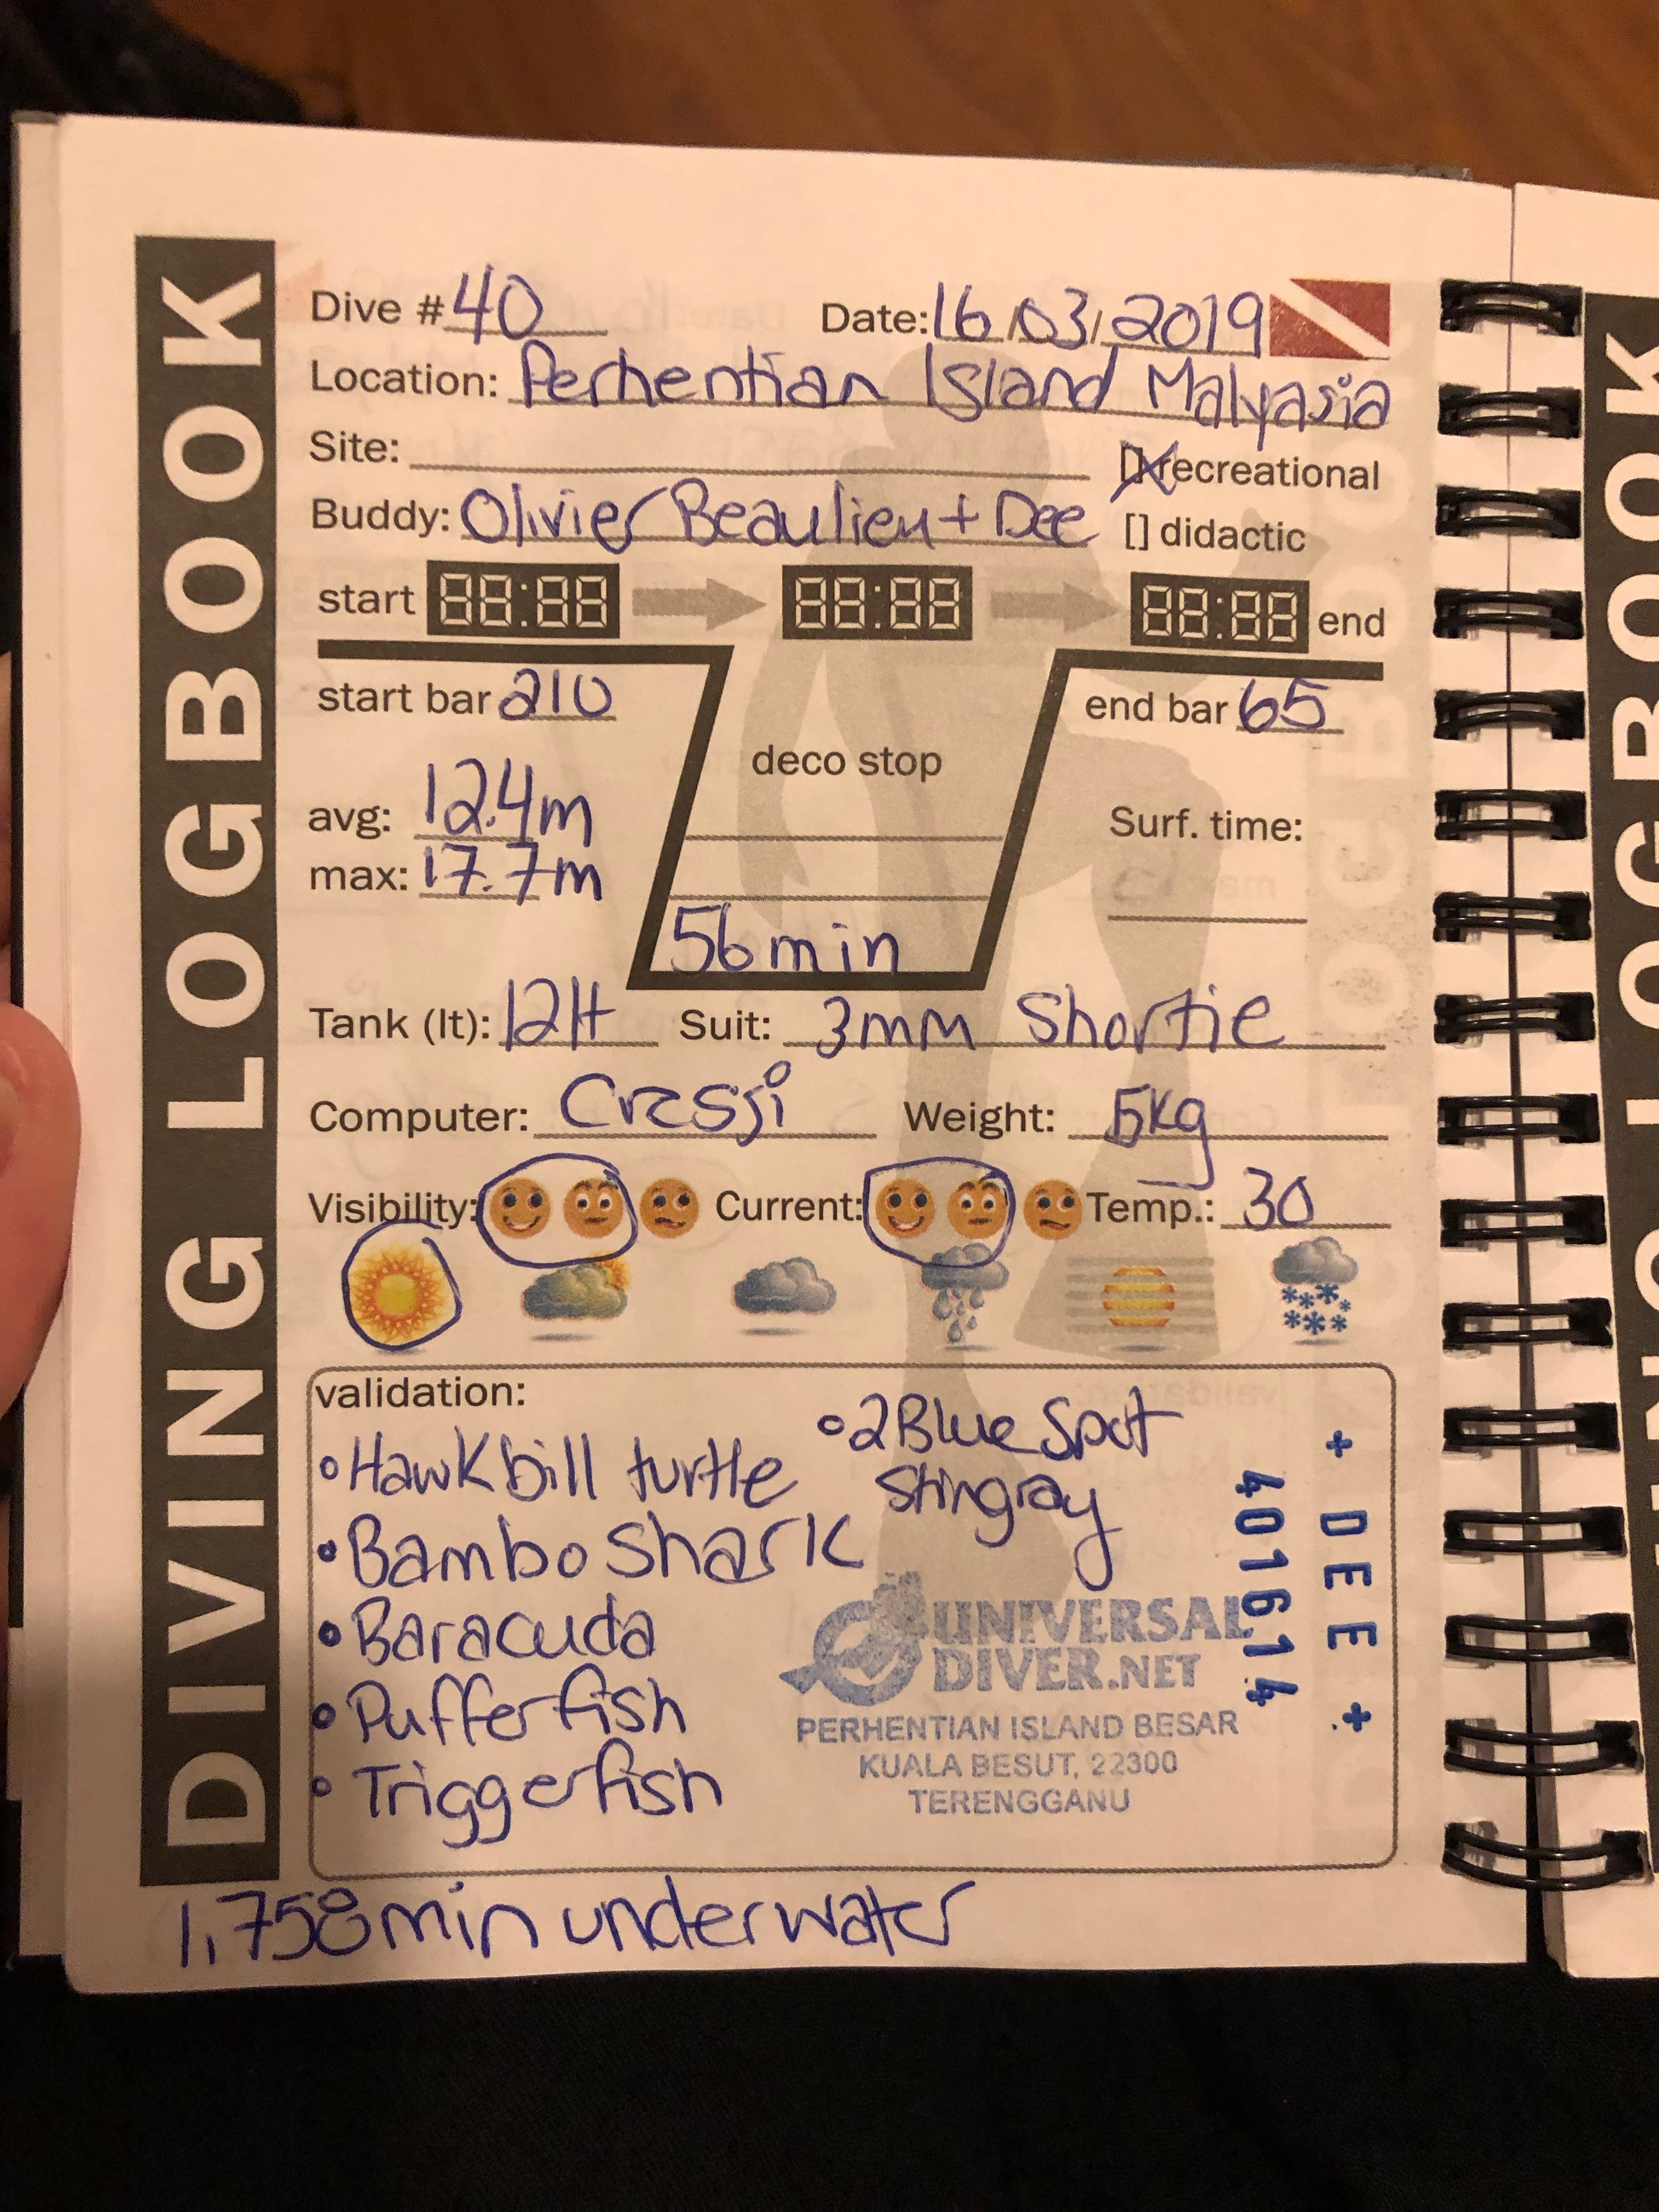 DIVING LOGBOOK
Dive #40 Date: 16/03/2019
Location: Perhentian Island Malyasia
Site:
[X] recreational
Buddy: Olivier Beaulieu + Dee [] didactic
start 88:88 88:88 88:88 end
start bar 210 end bar 65
deco stop
avg: 12.4m Surf. time:
max: 17.7m
56min
Tank (lt): 12lt Suit: 3mm Shortie
Computer: Cressi Weight: 5kg
Visibility: Current: Temp.: 30
validation:
•2 Blue Spot
Stingray
•Hawkbill turtle
•Bambo shark
•Baracuda
•Pufferfish
•Triggerfish
+ DEE +
401614
UNIVERSAL
DIVER.NET
PERHENTIAN ISLAND BESAR
KUALA BESUT, 22300
TERENGGANU
1,758min underwater